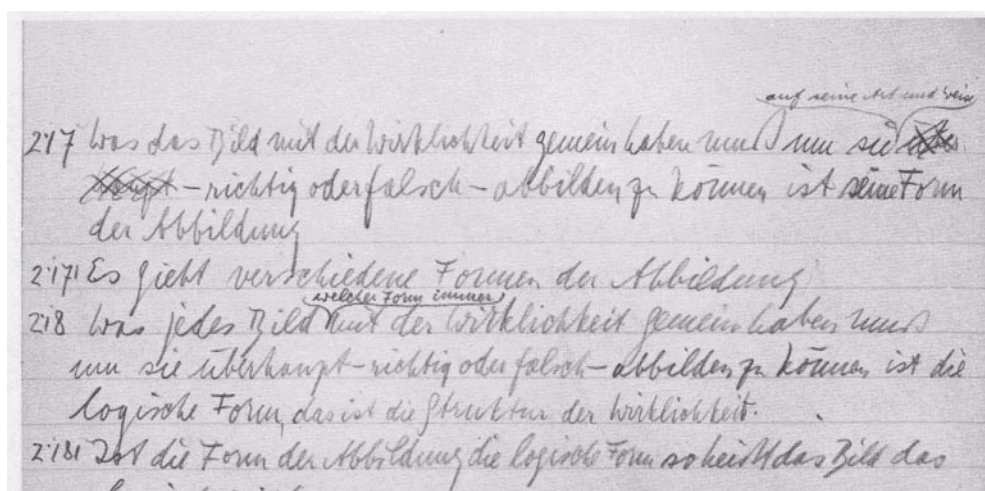 auf seine Art und Weise
2·17 Was das Bild mit der Wirklichkeit gemein haben muß um sie über
haupt – richtig oder falsch – abbilden zu können ist seine Form
der Abbildung
2·171 Es giebt verschiedene Formen der Abbildung
welcher Form immer
2·18 Was jedes Bild mit der Wirklichkeit gemein haben muß
um sie überhaupt – richtig oder falsch – abbilden zu können ist die
logische Form, das ist die Struktur der Wirklichkeit.
2·181 Ist die Form der Abbildung die logische Form so heißt das Bild das